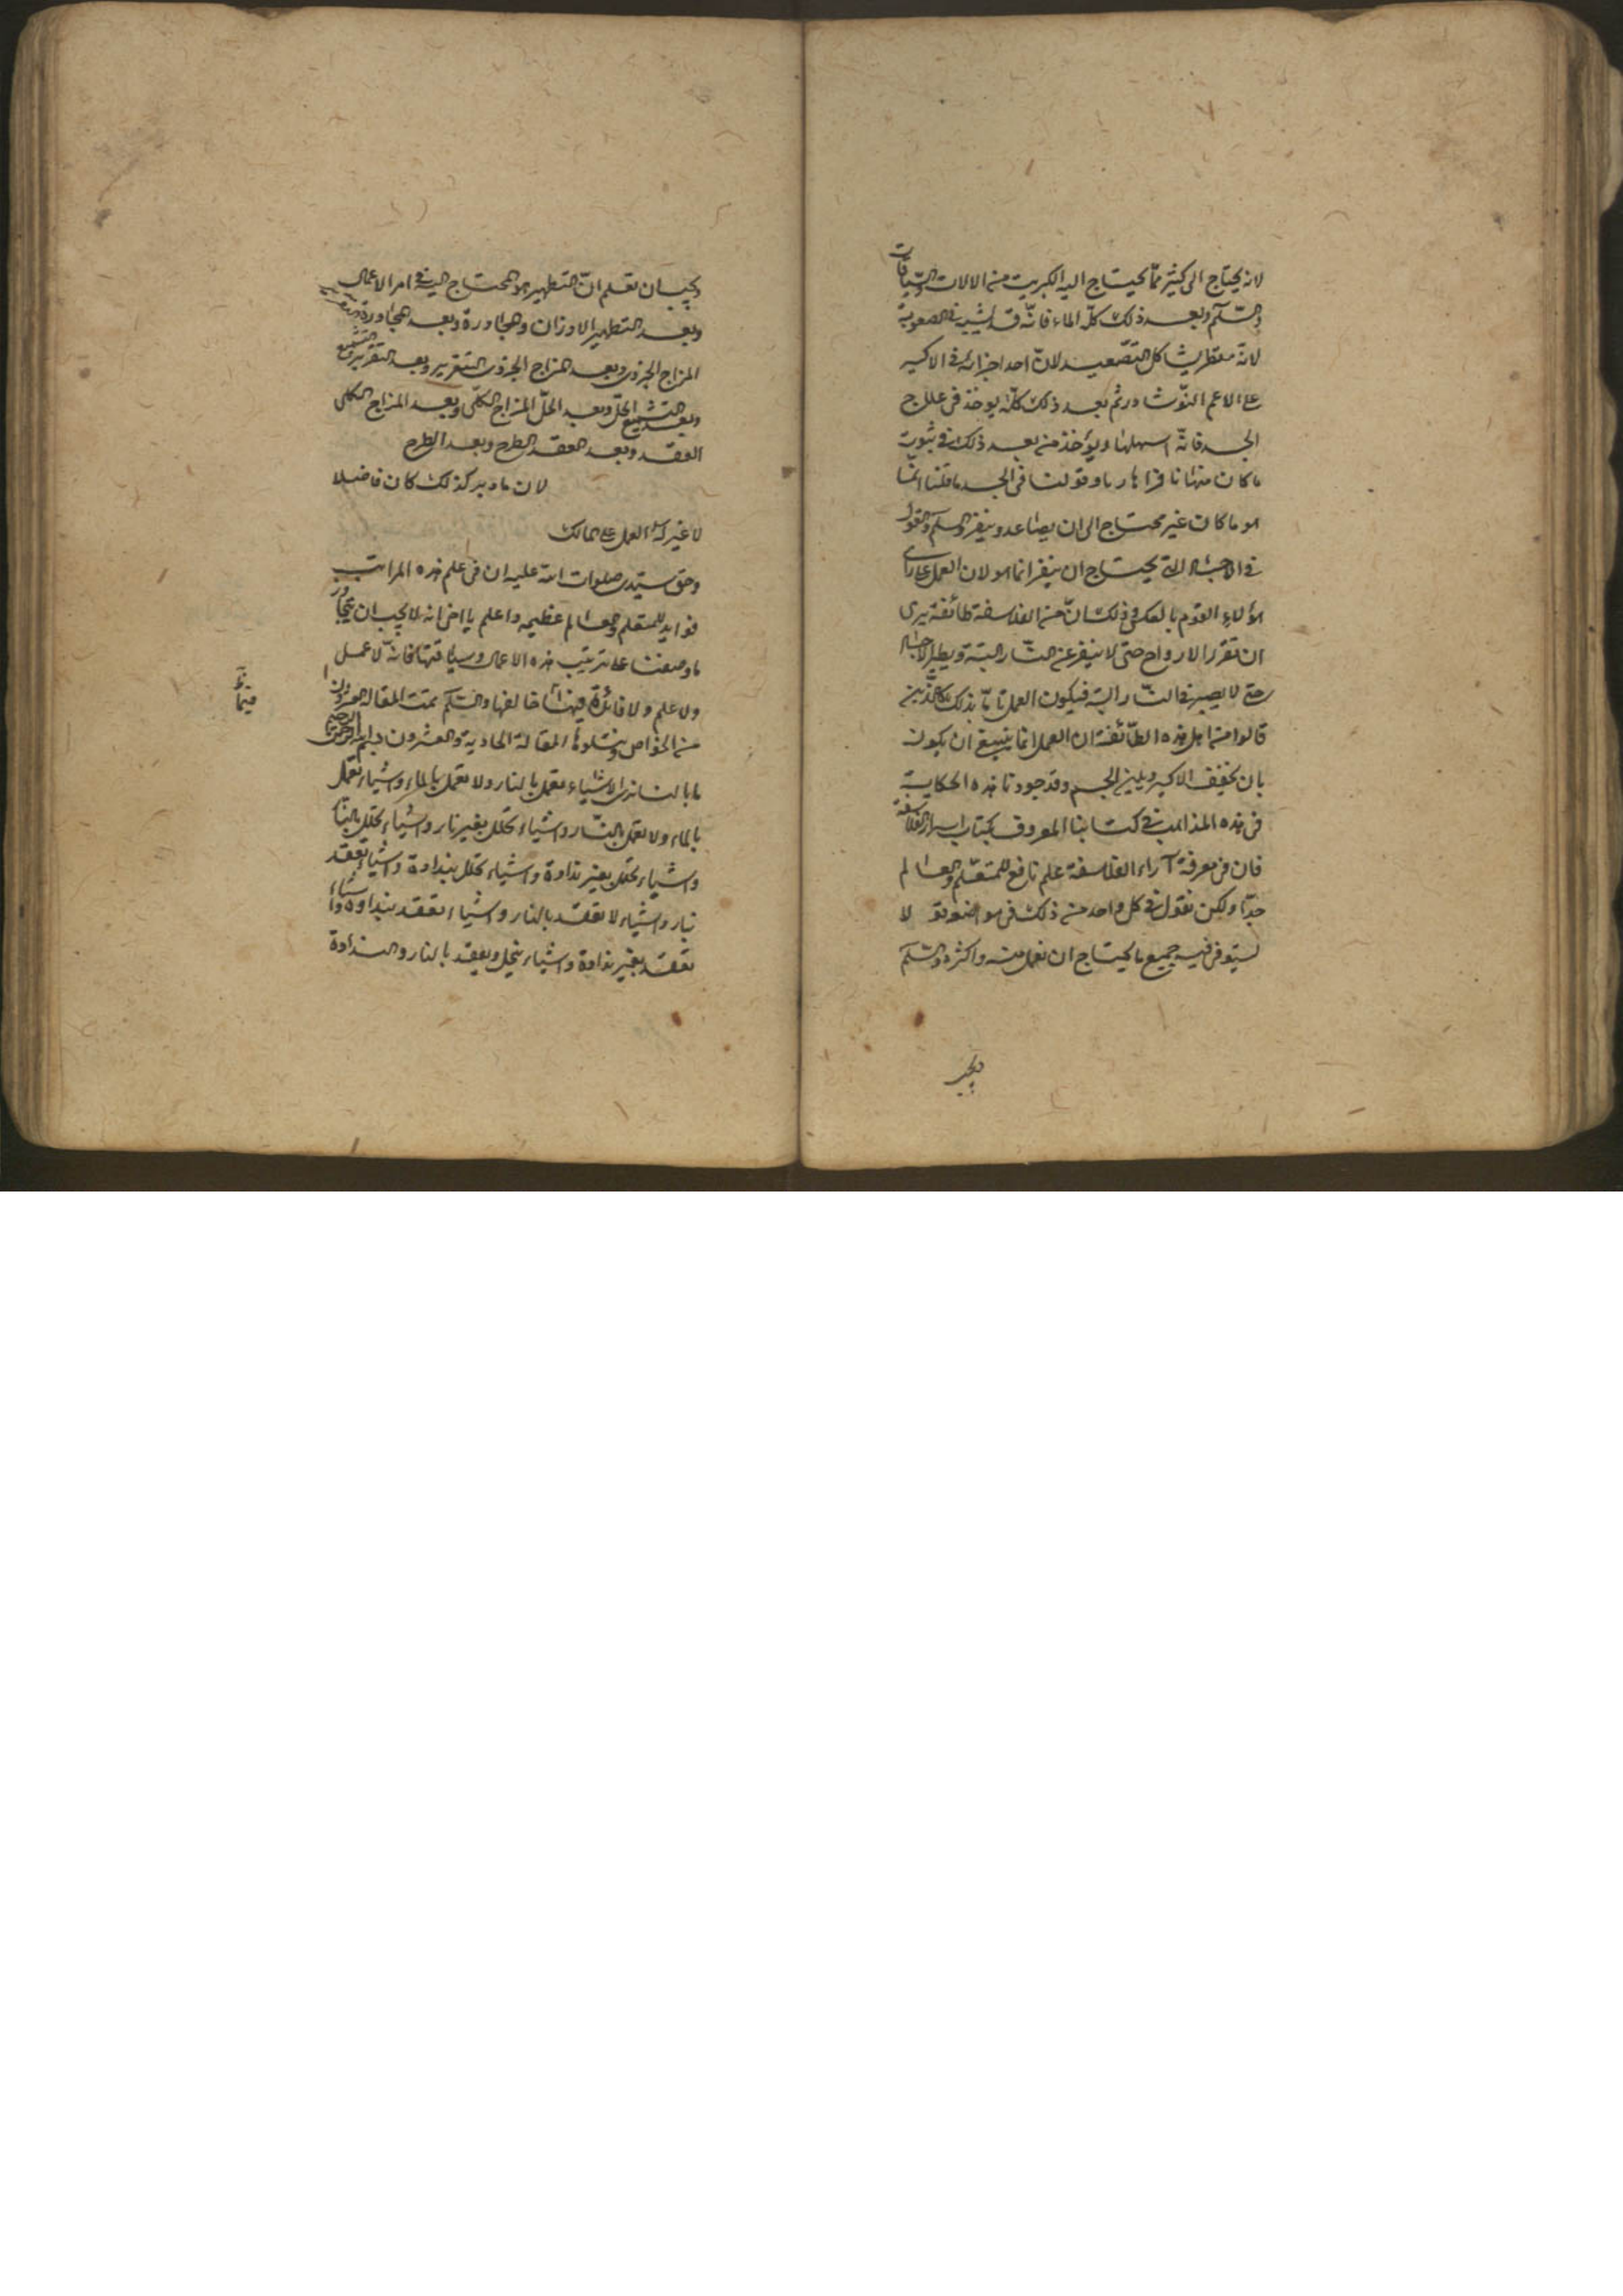 لانه يحتاج الى كثير ممّا يحتاج اليه الكبريت من الالات والسياقات
والسّلم وبعد ذلك كلّه الماء فانّه قد يشبه في الصعوبة
لانّه يقطر يشاكل التصّعيد لانّ احد اجزائه في الاكسير
على الاعم النّوشادر ثم بعد ذلك كلّه يوخذ في علاج
الجسد فانّه اسهلها ويؤخذ من بعد ذلك في ثبوت
ما كان منها نافرا هاربا وقولنا في الجسد ما قلنا انّما
هو ما كان غير محتاج الى ان يصاعد وينفر والسلم والقول
في الاجساد التي يحتاج ان ينفر انما هو لان العمل على راى
هؤلاء القوم بالعكس وذلك انّ من الفلاسفة طائفة يرى
ان تقرر الارواح حتى لا ينفر عن النّار البتة ويطير الاجساد
حتى لا يصبر في النّار البتة فيكون العمل تامّا بذلك كالذين
قالوا من اهل هذه الطّائفة ان العمل انما ينبغي ان يكون
بان يخفف الاكسير ويلين الجسم وقد جودنا هذه الحكاية
فى هذه المذاهب في كتابنا المعروف بكتاب اسرار الفلاسفة
فان في معرفة آراء الفلاسفة علم نافع للمتعّلم والعالم
جدّا ولكن نقول في كل واحد من ذلك في مواضعه قو لا
نستوفي فيه جميع ما يحتاج ان نعمل منه واكثره والسّلم
ويجب
ويجب ان تعلم انّ التطهير هو المحتاج اليه في امر الاعمال
وبعد التطهير الاوزان والمجاورة وبعد المجاورة
المزاج الجزوى وبعد المزاج الجزوى التقرير وبعد التقرير التشميع
وبعد التشميع الحلّ وبعد الحلّ المزاج الكلّى وبعد المزاج الكلى
العقد وبعد العقد الطرح وبعد الطرح
لان ما دبر كذلك كان فاضلا
لا غير له العمل على ممالك
وحق سيّدى صلوات الله عليه ان فى علم هذه المراتب
فوايد للمتعلم والعالم عظيمه واعلم يا اخى انه لا يجب ان يتجاوز
ما وصفنا على ترتيب هذه الاعمال وسياقتها فانّه لا عمل
ولا علم ولا فائدة فيها اذا خالفها والسّلم تمت المقاله العشرون
من الخواص ويتلوها المقالة الحادية والعشرون بسم الله الرحمن الرحيم
ما بالنا نرى الاشياء تعمل بالنار ولا تعمل بالماء واشياء تعمل
بالماء ولا تعمل بالنّار واشياء تحلل بغير نار واشياء تحلل بالنار
واشياء تحلل بغير نداوة واشياء تحلل بنداوة واشياء تعقد
بنار واشياء لا تعقد بالنار واشياء تعقد بنداوة واشياء
تعقد بغير نداوة واشياء ينحل ويعقد بالنار والنداوة